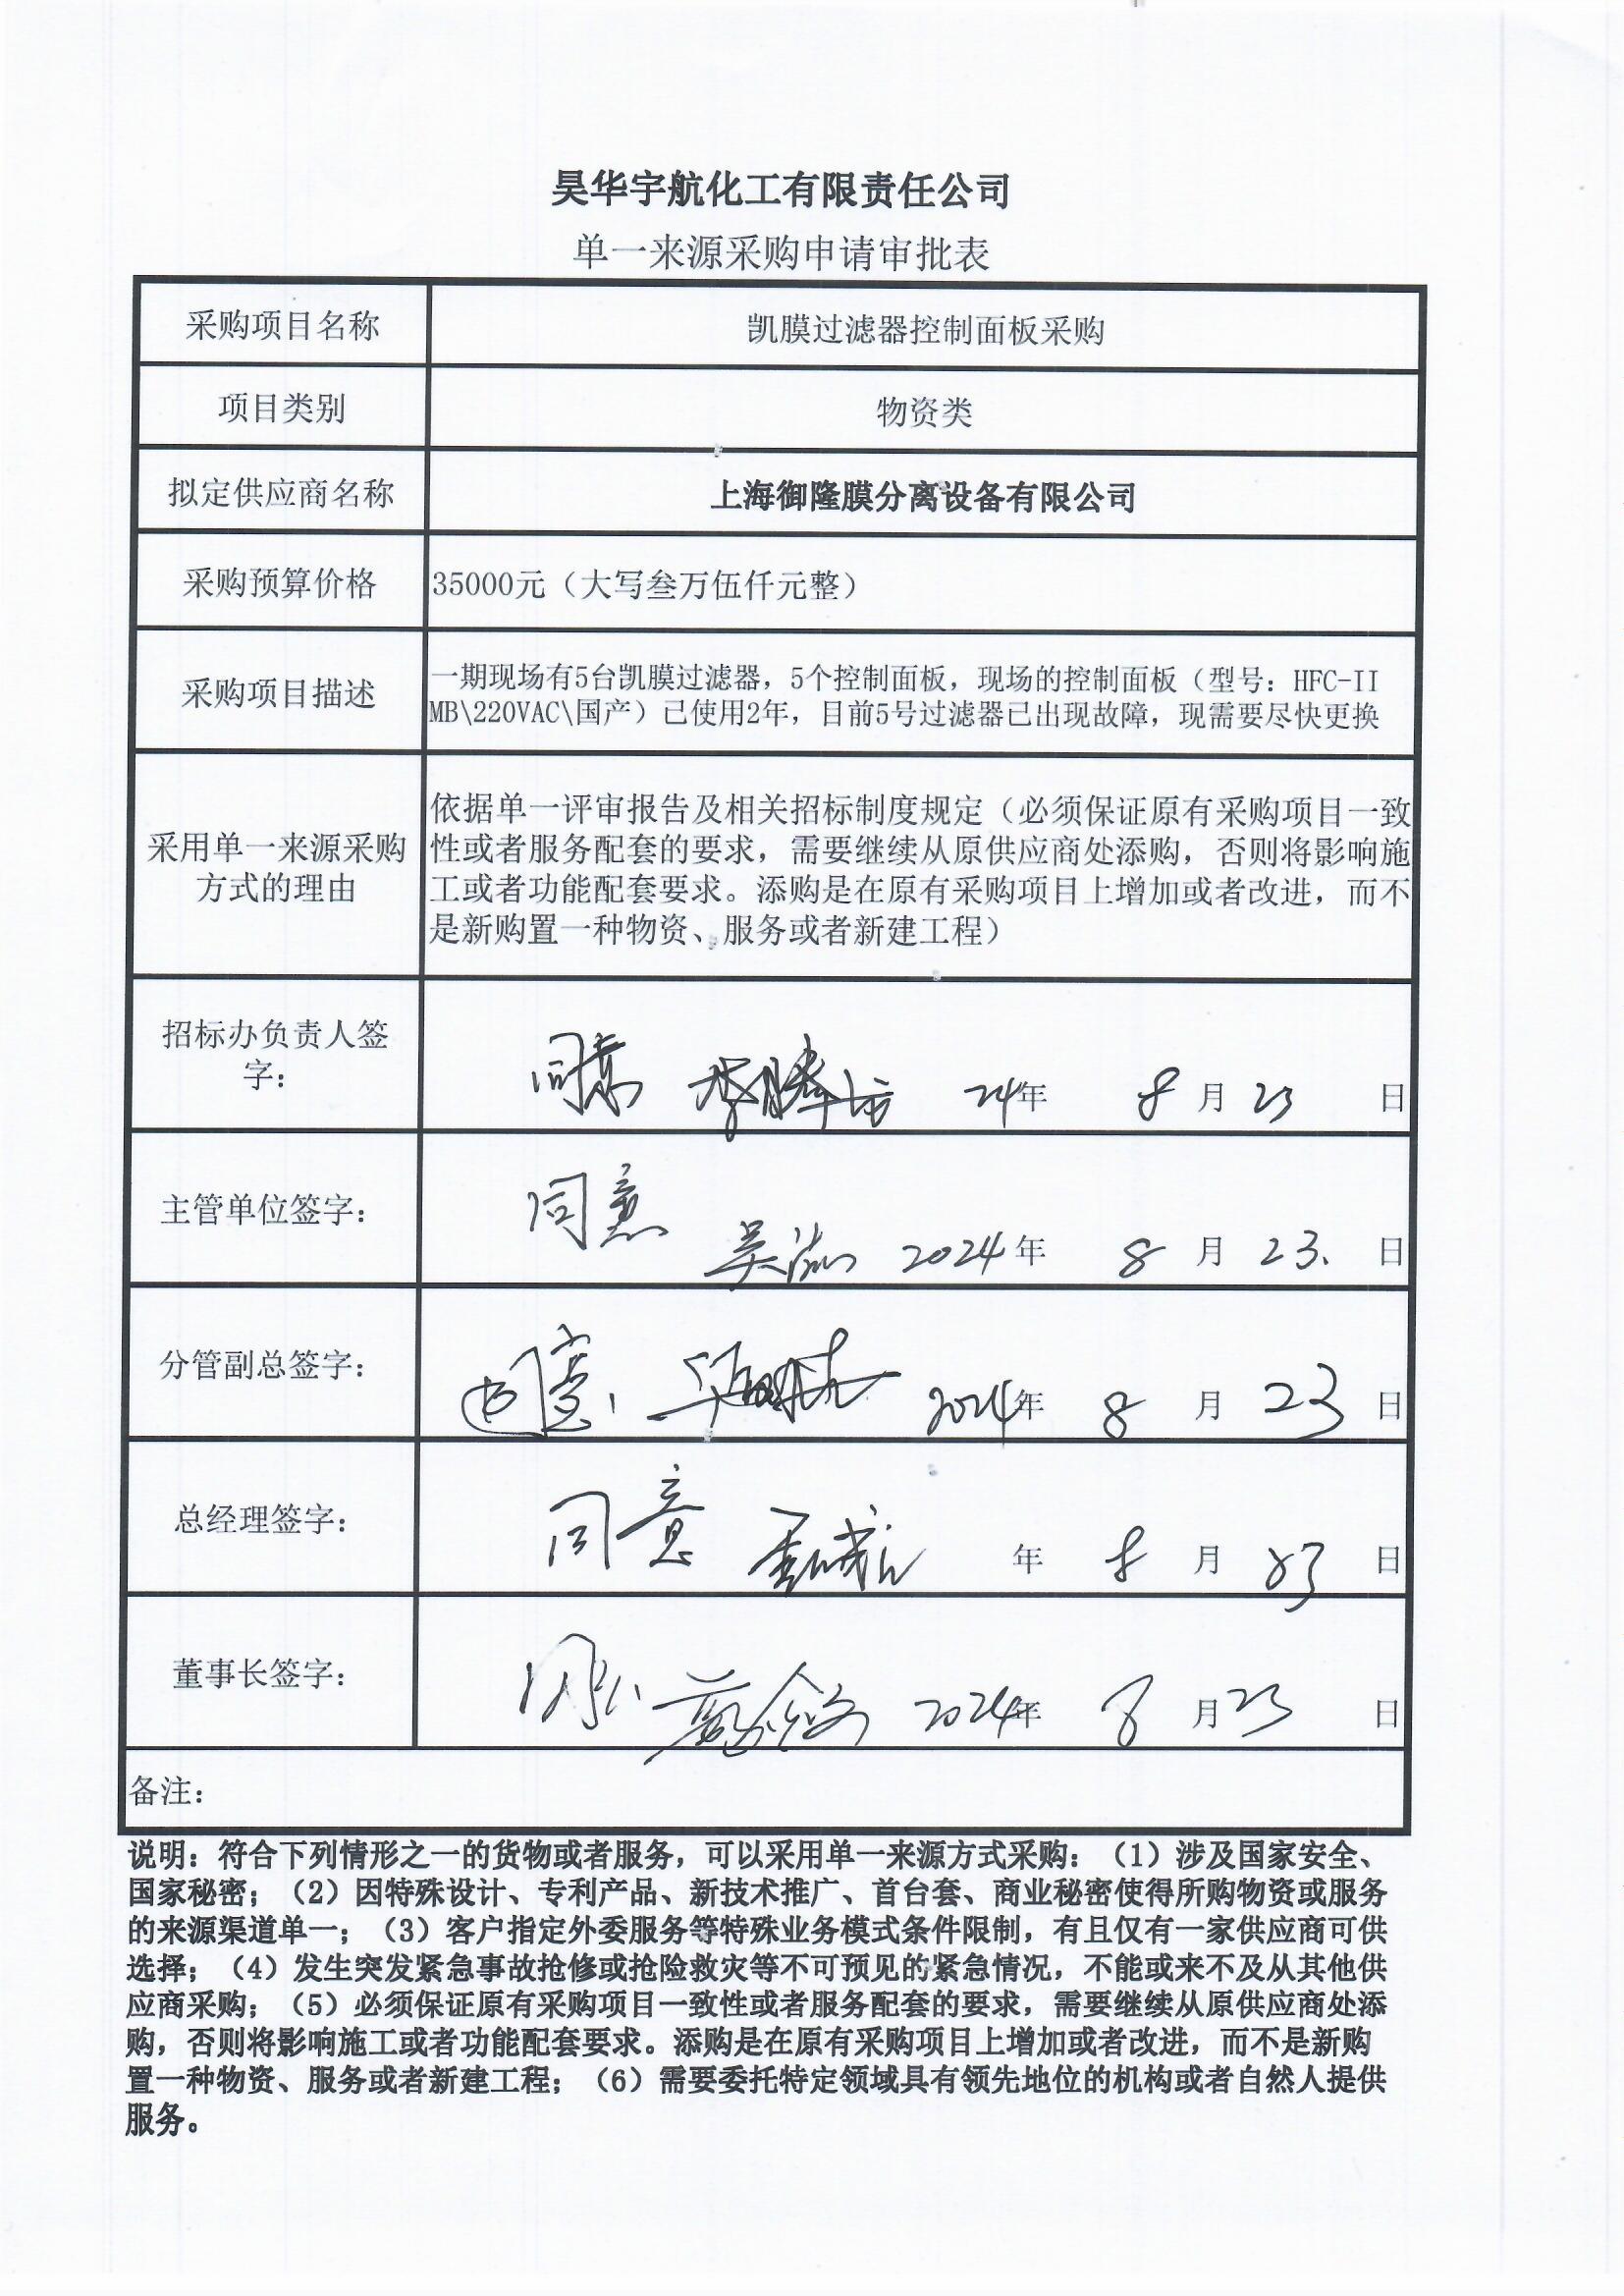 昊华宇航化工有限责任公司
单一来源采购申请审批表
采购项目名称
凯膜过滤器控制面板采购
项目类别
物资类
拟定供应商名称
上海御隆膜分离设备有限公司
采购预算价格
35000元（大写叁万伍仟元整）
采购项目描述
一期现场有5台凯膜过滤器，5个控制面板，现场的控制面板（型号：HFC-II
MB\220VAC\国产）已使用2年，目前5号过滤器已出现故障，现需要尽快更换
采用单一来源采购
方式的理由
依据单一评审报告及相关招标制度规定（必须保证原有采购项目一致
性或者服务配套的要求，需要继续从原供应商处添购，否则将影响施
工或者功能配套要求。添购是在原有采购项目上增加或者改进，而不
是新购置一种物资、服务或者新建工程）
招标办负责人签
字：
同意 24年 8月23日
主管单位签字：
同意 2024年 8月23.日
分管副总签字：
同意 2024年 8月23日
总经理签字：
同意 年 8月23日
董事长签字：
2024年 8月23日
备注：
说明：符合下列情形之一的货物或者服务，可以采用单一来源方式采购：（1）涉及国家安全、
国家秘密；（2）因特殊设计、专利产品、新技术推广、首台套、商业秘密使得所购物资或服务
的来源渠道单一；（3）客户指定外委服务等特殊业务模式条件限制，有且仅有一家供应商可供
选择；（4）发生突发紧急事故抢修或抢险救灾等不可预见的紧急情况，不能或来不及从其他供
应商采购；（5）必须保证原有采购项目一致性或者服务配套的要求，需要继续从原供应商处添
购，否则将影响施工或者功能配套要求。添购是在原有采购项目上增加或者改进，而不是新购
置一种物资、服务或者新建工程；（6）需要委托特定领域具有领先地位的机构或者自然人提供
服务。